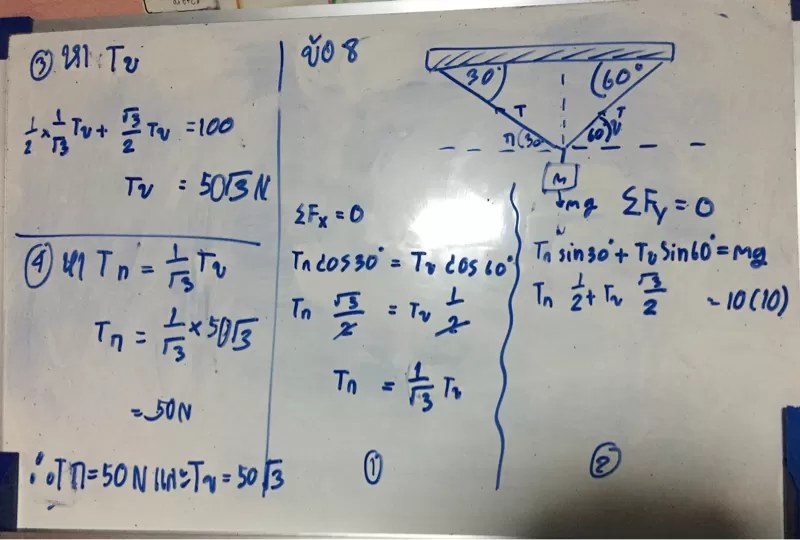 ③ หา Tข
1/2 × 1/√3 Tข + √3/2 Tข = 100
Tข = 50√3 N
④ หา Tก = 1/√3 Tข
Tก = 1/√3 × 50√3
= 50N
∴ Tก = 50 N และ Tข = 50√3
ข้อ 8
30°
60°
T
T
ก
30
60
ข
M
Mg
ΣFx = 0
Tก cos30° = Tข cos60°
Tก √3/2 = Tข 1/2
Tก = 1/√3 Tข
①
ΣFy = 0
Tก sin30° + Tข sin60° = Mg
Tก 1/2 + Tข √3/2 = 10(10)
②